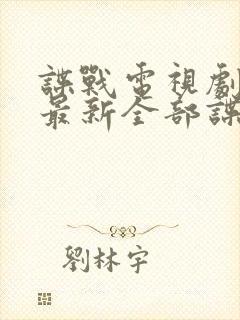 諜戰電視劇
最新全部諜
劉林宇